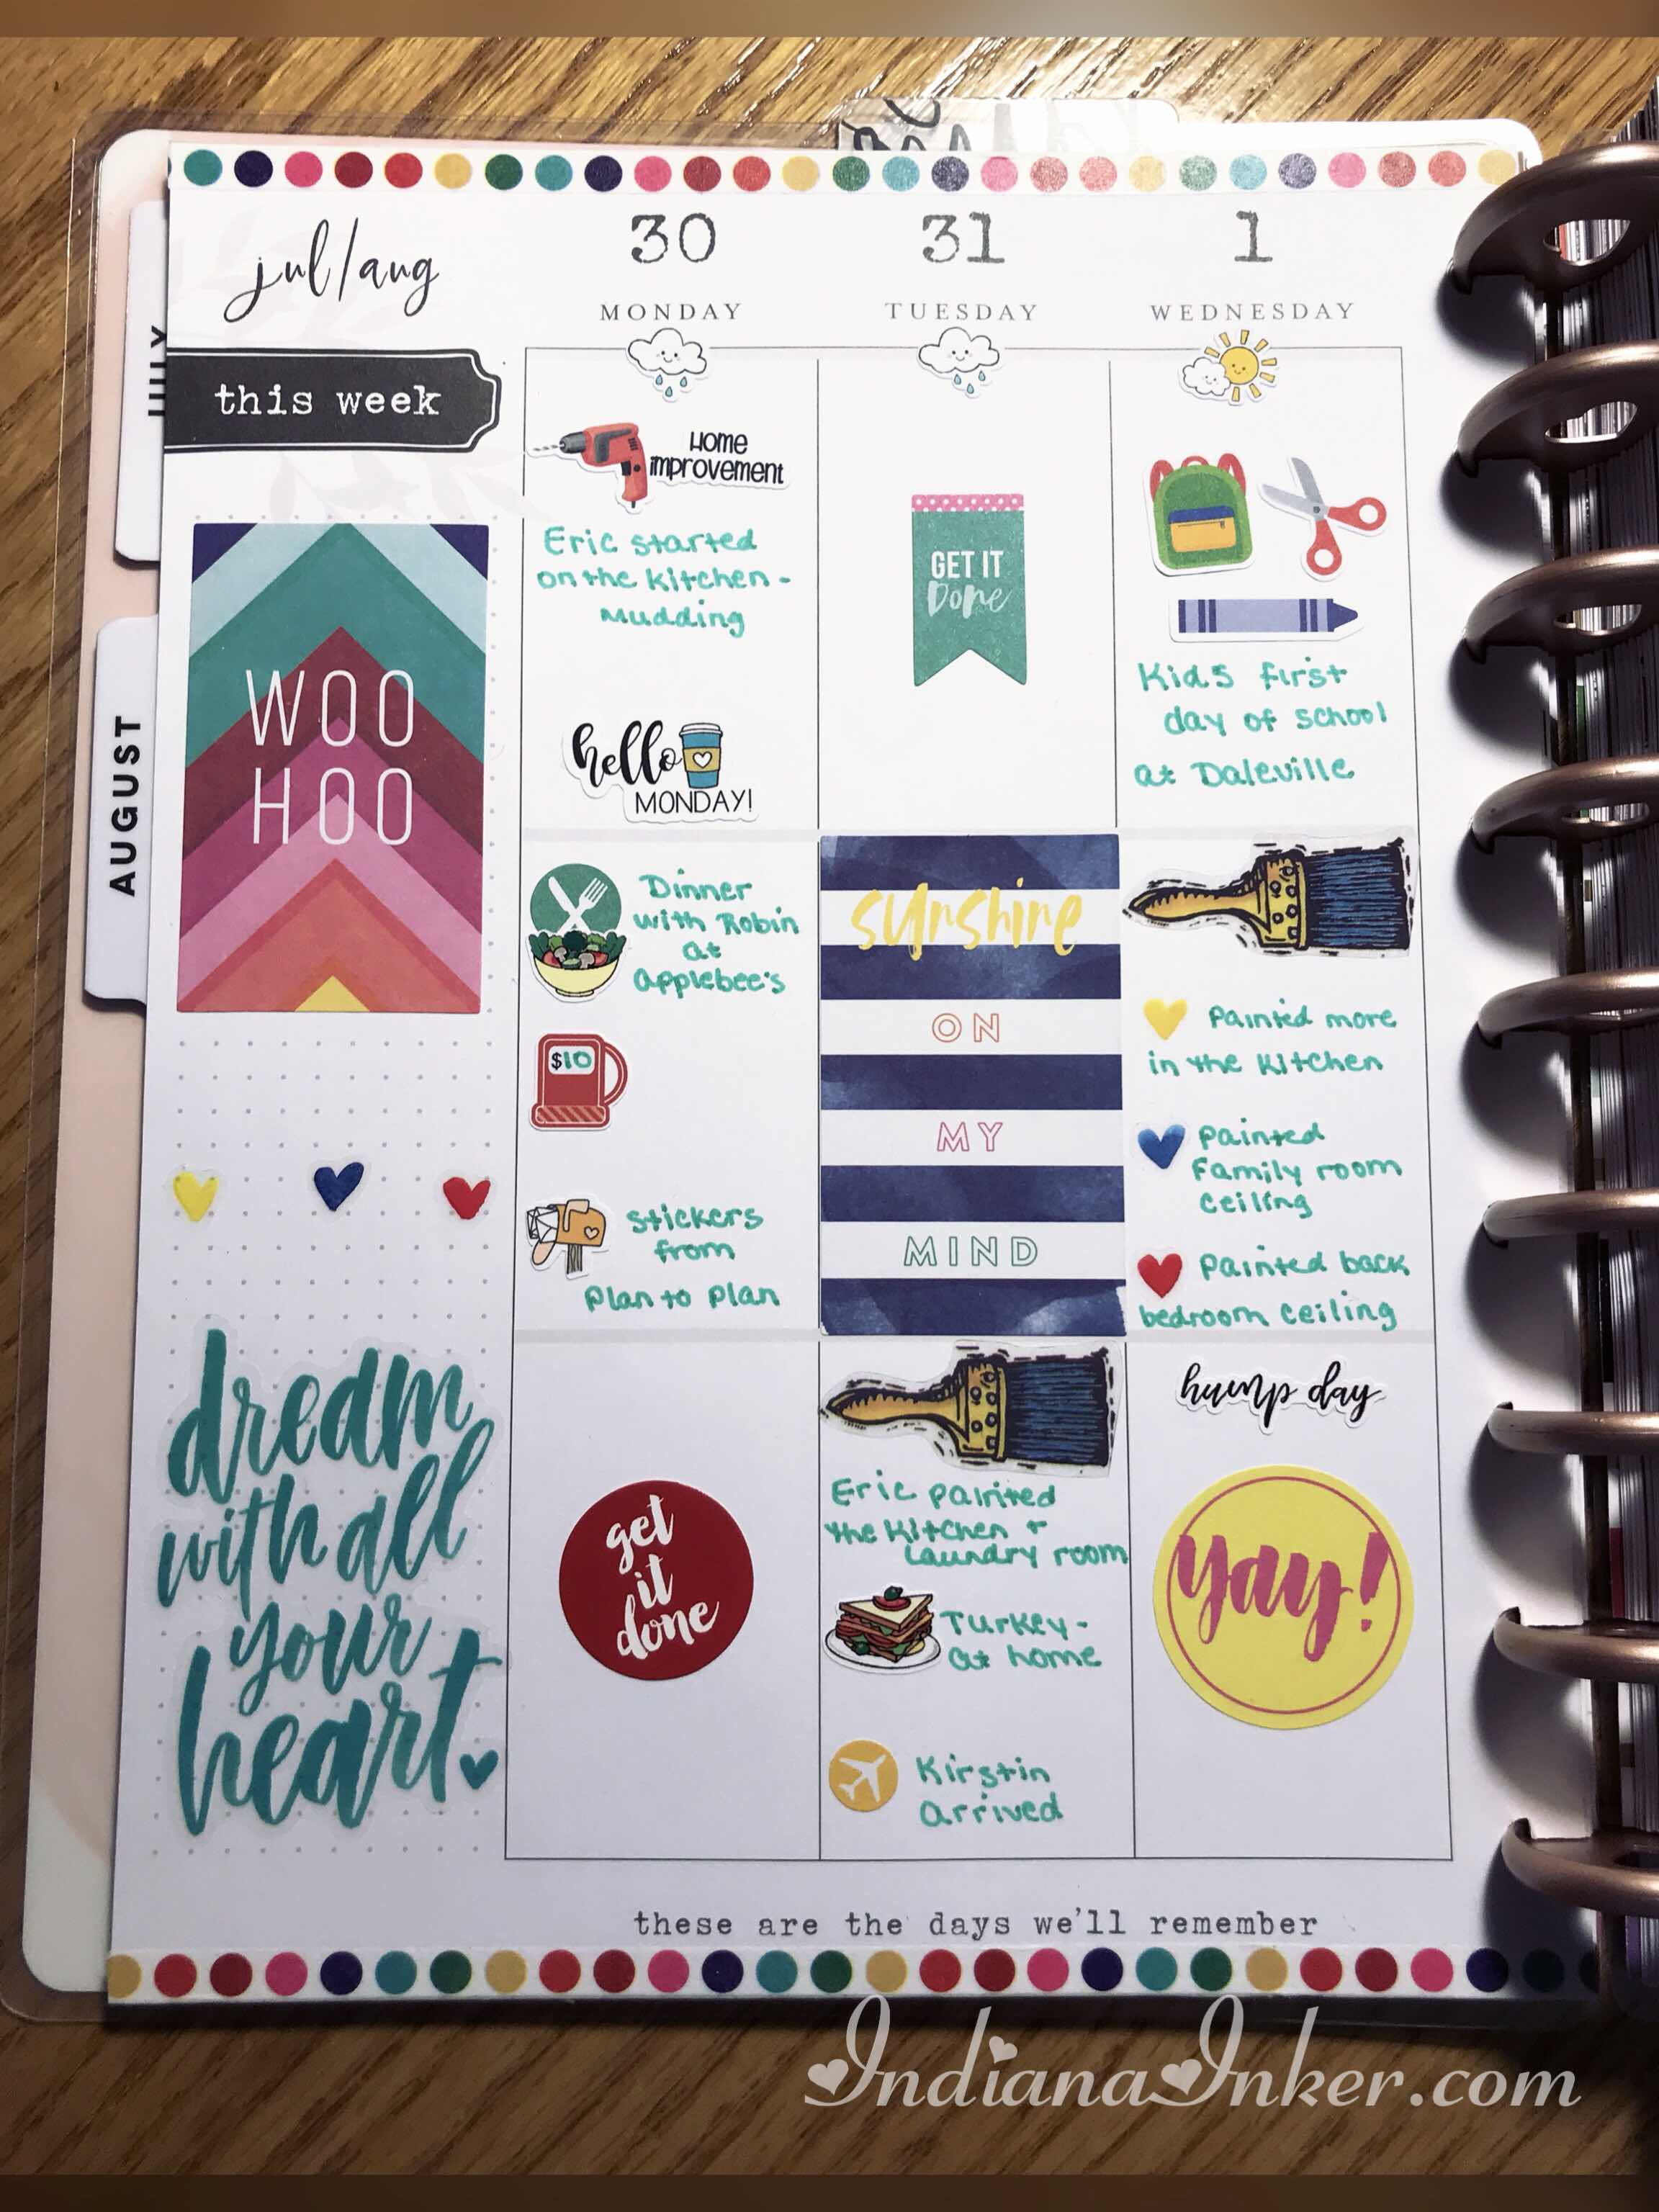 jul/aug
this week
JULY
AUGUST
WOO
HOO
dream
with all
your
heart
30
MONDAY
Home
improvement
Eric started
on the Kitchen -
Mudding
hello
MONDAY!
Dinner
with Robin
at
applebee's
$10
Stickers
from
Plan to Plan
get
it
done
31
TUESDAY
GET IT
Done
sunshine
ON
MY
MIND
Eric painted
the Kitchen +
Laundry room
Turkey -
at home
Kirstin
arrived
1
WEDNESDAY
Kids first
day of school
at Daleville
Painted more
in the Kitchen
Painted
Family room
ceiling
Painted back
bedroom ceiling
hump day
yay!
these are the days we'll remember
IndianaInker.com